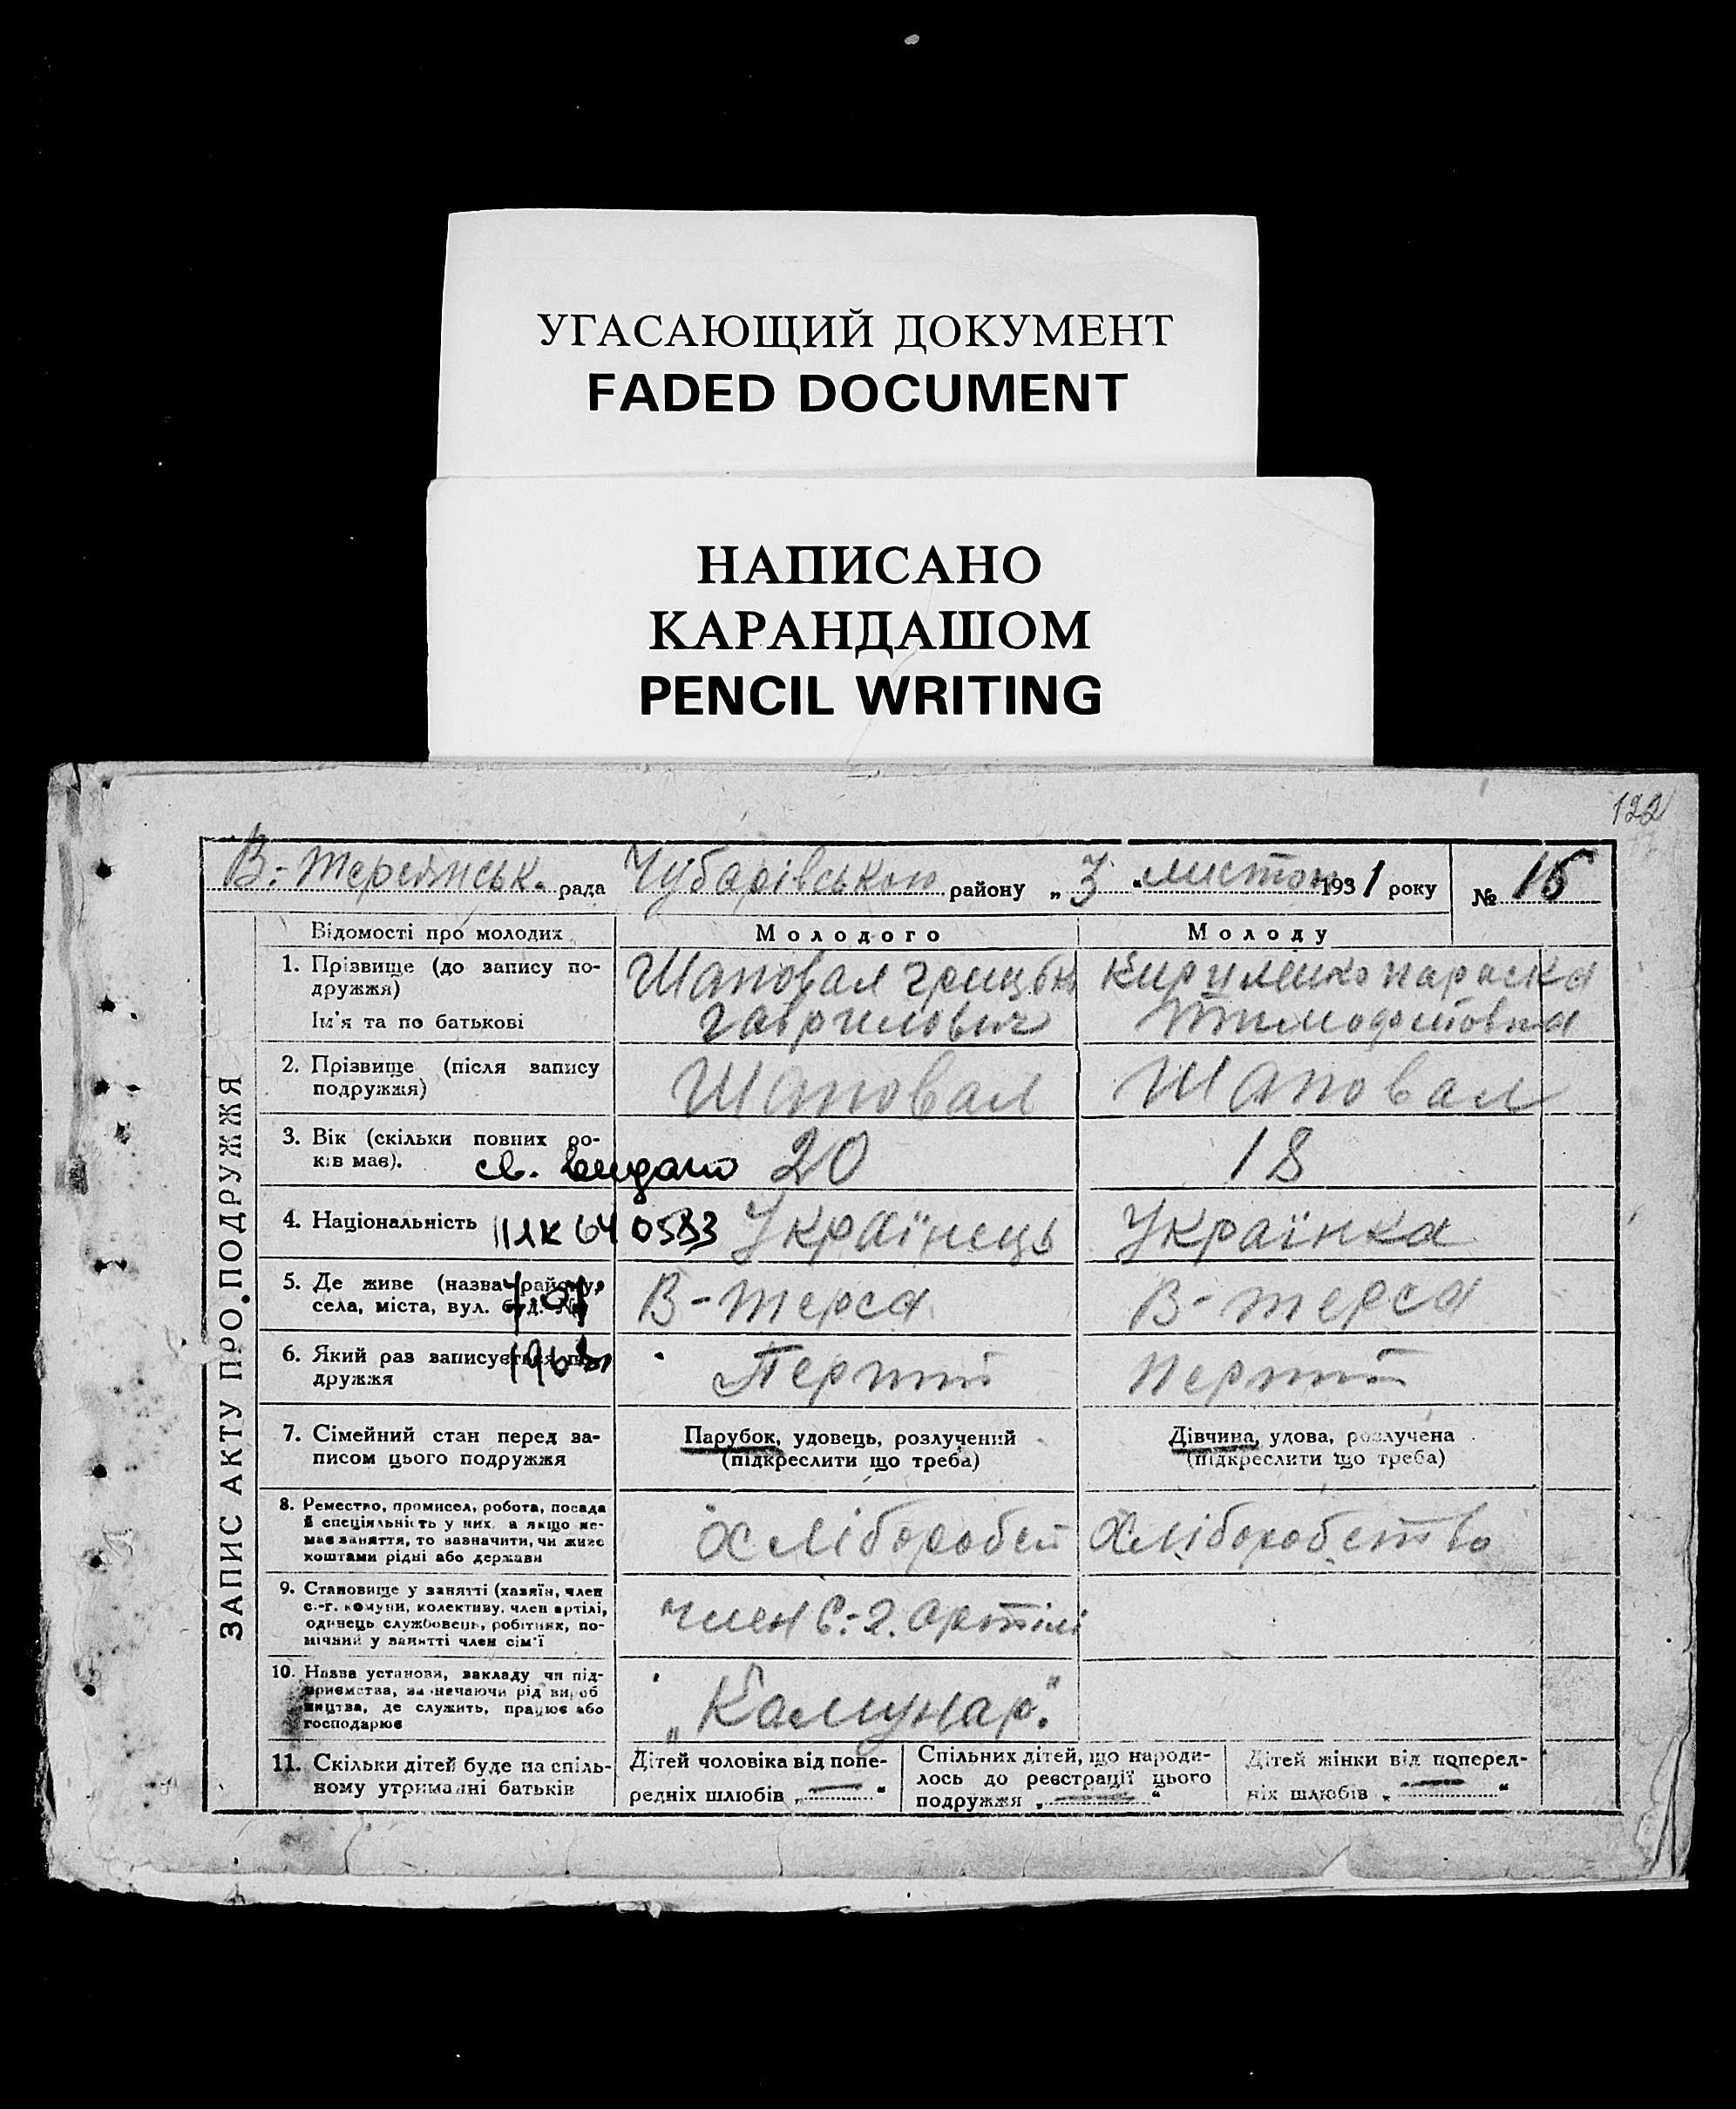 УГАСАЮЩИЙ ДОКУМЕНТ
FADED DOCUMENT
НАПИСАНО
КАРАНДАШОМ
PENCIL WRITING
122
В.-Терсянськ. рада Чубарівською району „3“ листоп 1931 року № 16
ЗАПИС АКТУ ПРО ПОДРУЖЖЯ
Відомості про молодих
Молодого
Молоду
1. Прізвище (до запису по-
дружжя)
Ім'я та по батькові
Шаповал Грицько
Гаврилович
Кириленко Параска
Тимофетовна
2. Прізвище (після запису
подружжя)
Шаповал
Шаповал
3. Вік (скільки повних ро-
ків має).
св. видано
20
18
4. Національність
Українець
Українка
5. Де живе (назва району,
села, міста, вул. буд. №)
В-Терса
В-Терса
6. Який раз записується по-
дружжя
Перший
Перший
7. Сімейний стан перед за-
писом цього подружжя
Парубок, удовець, розлучений
(підкреслити що треба)
Дівчина, удова, розлучена
(підкреслити що треба)
8. Ремество, промисел, робота, посада
й спеціяльність у них, а якщо не-
має заняття, то зазначити, чи живе
коштами рідні або держави
Хлібороб
Хліборобство
9. Становище у занятті (хазяїн, член
с.-г. комуни, колективу, член артілі,
одинець службовець, робітник, по-
мічний у занятті член сім'ї
член С.-г. артілі
10. Назва установи, закладу чи під-
приємства, зазначаючи рід вироб
ництва, де служить, працює або
господарює
„Комунар“
11. Скільки дітей буде на спіль-
ному утриманні батьків
Дітей чоловіка від попе-
редніх шлюбів „—“
Спільних дітей, що народи-
лось до реєстрації цього
подружжя „—“
Дітей жінки від поперед-
ніх шлюбів „—“